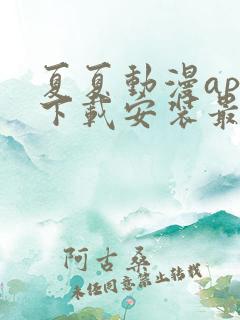 夏夏動漫ap
下載安裝最
阿古桑
未经同意禁止转载